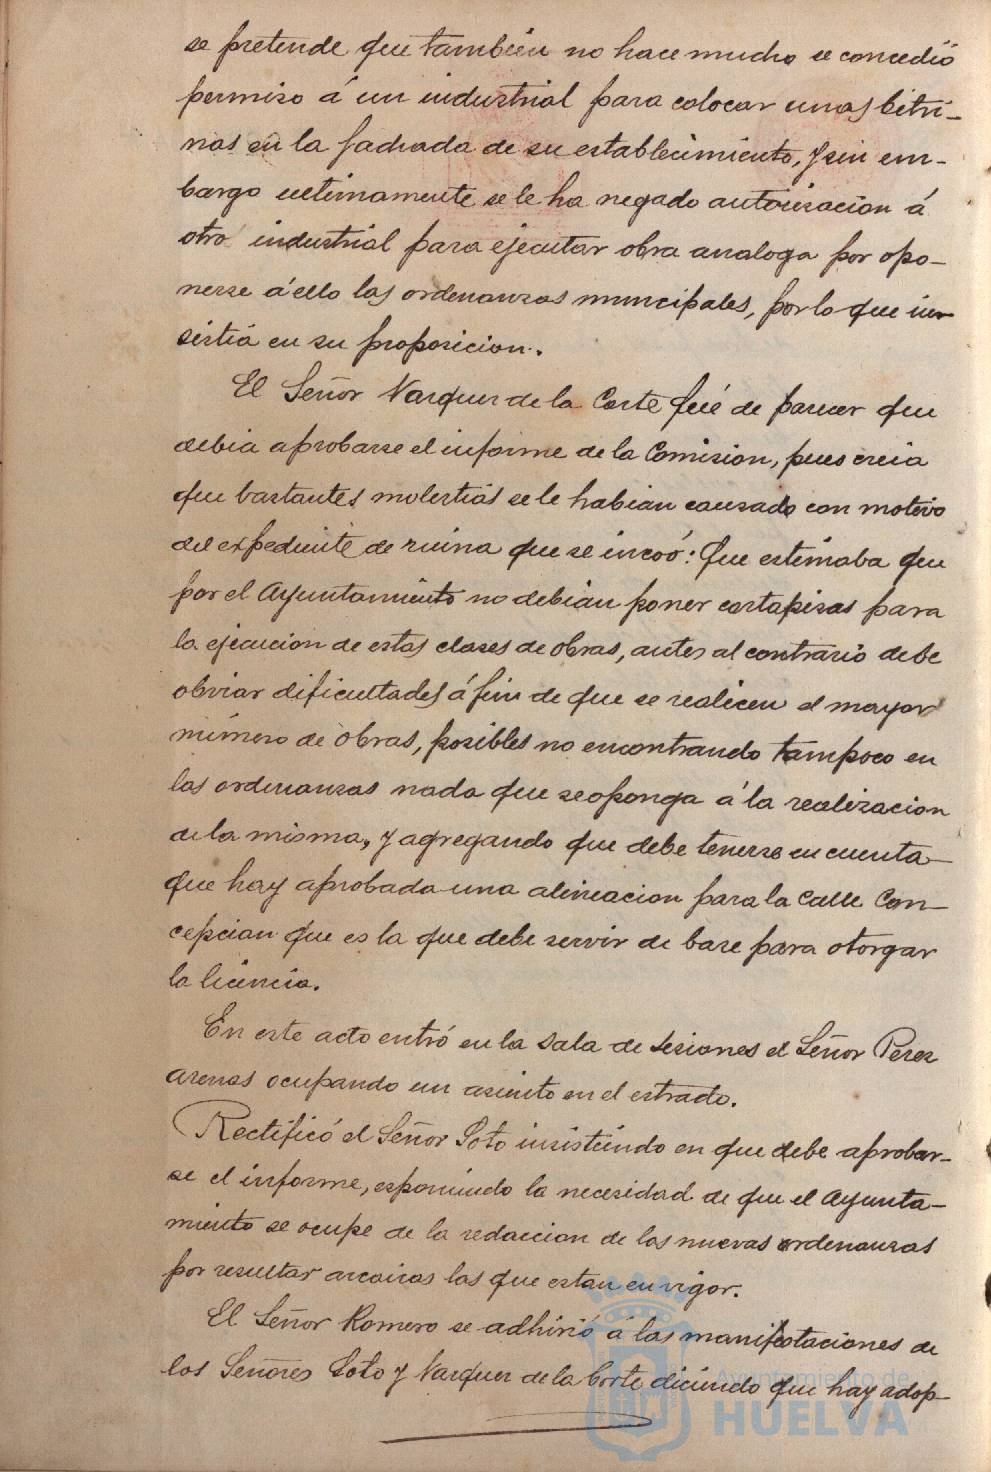 se pretende que tambien no hace mucho se concedió
permiso á un industrial para colocar unas bitri-
nas en la fachada de su establecimiento, y sin em-
bargo ultimamente se le ha negado autorizacion á
otro industrial para ejecutar obra analoga por opo-
nerse á ello las ordenanzas municipales, por lo que in-
sistia en su proposicion.
El Señor Vazquez de la Corte fué de parecer que
debia aprobarse el informe de la Comision, pues creia
que bastantes molestias se le habian causado con motivo
del expediente de ruina que se incoó: Que estimaba que
por el Ayuntamiento no debian poner cortapisas para
la ejecucion de estas clases de obras, antes al contrario debe
obviar dificultades á fin de que se realicen el mayor
número de obras, posibles no encontrando tampoco en
las ordenanzas nada que se oponga á la realizacion
de la misma, y agregando que debe tenerse en cuenta
que hay aprobada una alineacion para la Calle Con-
cepcion que es la que debe servir de base para otorgar
la licencia.
En este acto entró en la Sala de sesiones el Señor Perez
Arenas ocupando un asiento en el estrado.
Rectificó el Señor Soto insistiendo en que debe aprobar-
se el informe, esponiendo la necesidad de que el Ayunta-
miento se ocupe de la redaccion de las nuevas ordenanzas
por resultar arcaicas las que estan en vigor.
El Señor Romero se adhirió á las manifestaciones de
los Señores Soto y Vazquez de la Corte diciendo que hay adop-
Ayuntamiento de
HUELVA